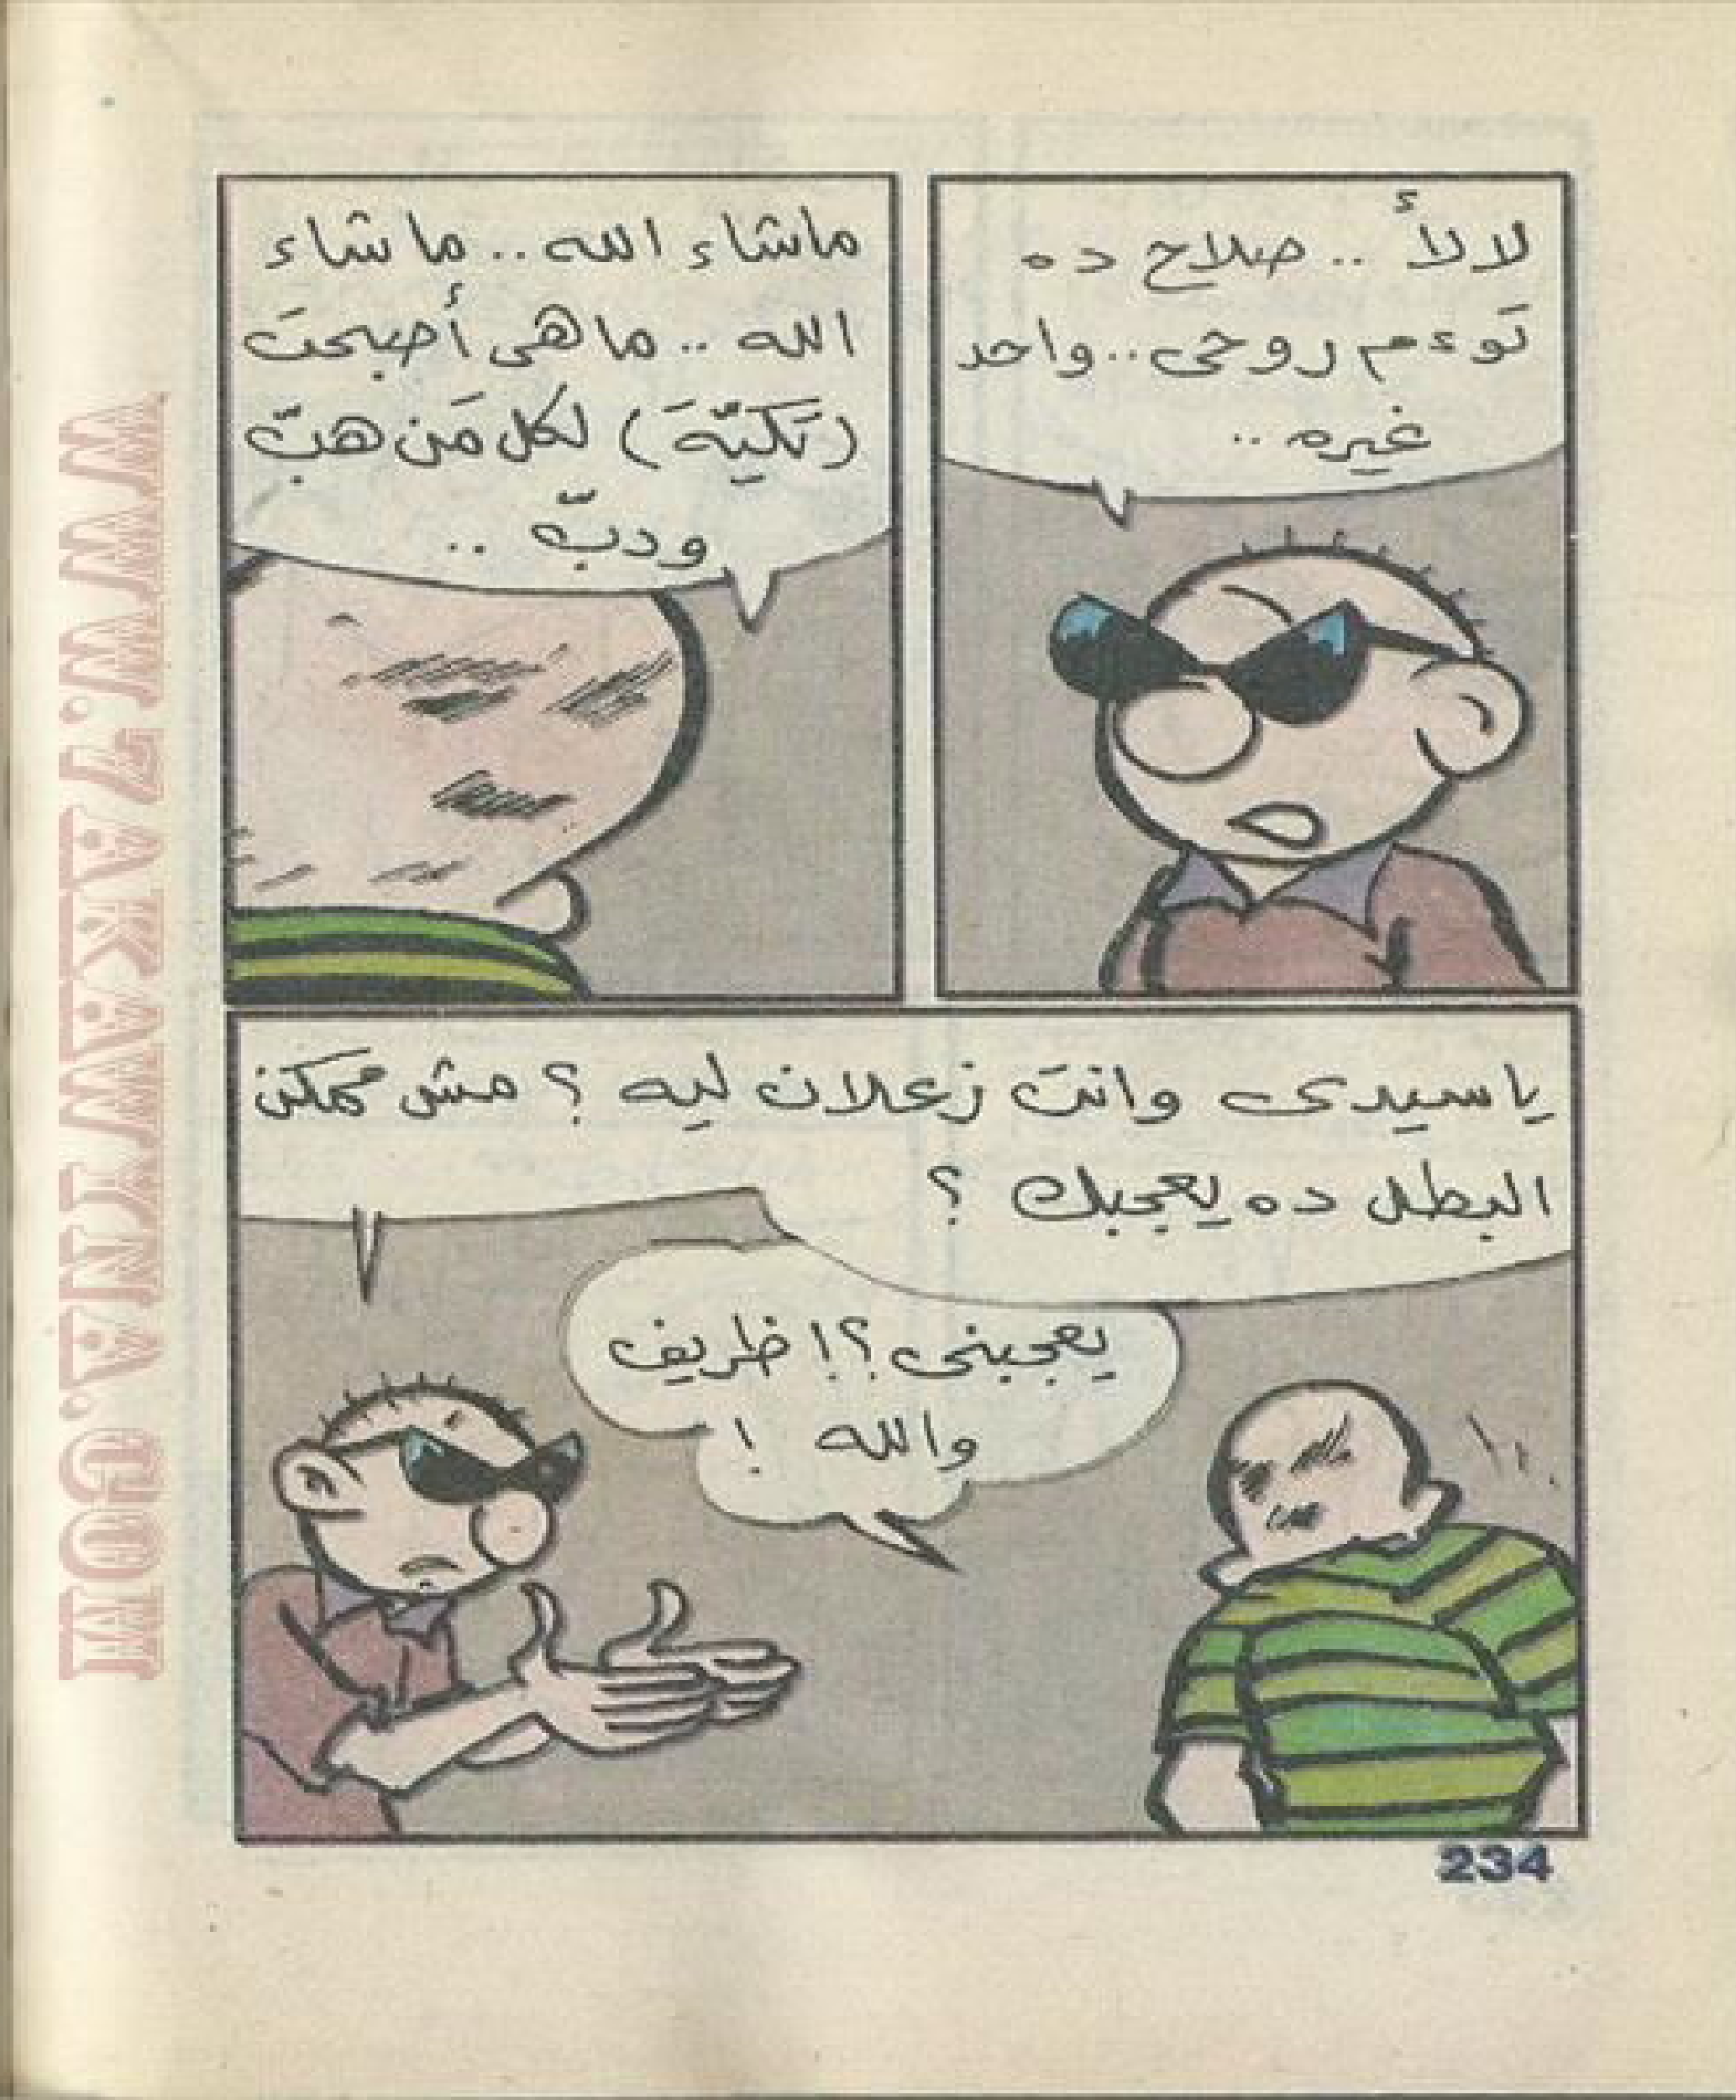 لالأ .. صلاح ده
توءم روحى.. واحد
غيره ..
ماشاء الله .. ما شاء
الله .. ما هى أصبحت
(تكيّة) لكل مَن هبّ
ودبّ ..
ياسيدى وانت زعلان ليه ؟ مش ممكن
البطل ده يعجبك ؟
يعجبنى ؟! ظريف
والله !
234
WWW.7AKAWITNA.COM